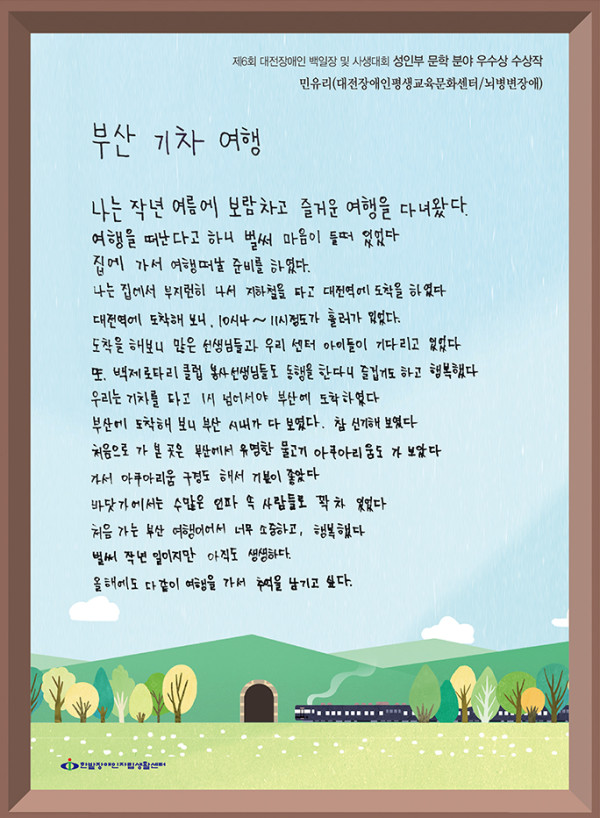 제6회 대전장애인 백일장 및 사생대회 성인부 문학 분야 우수상 수상작
민유리(대전장애인평생교육문화센터/뇌병변장애)
부산 기차 여행
나는 작년 여름에 보람차고 즐거운 여행을 다녀왔다.
여행을 떠난다고 하니 벌써 마음이 들떠 있었다
집에 가서 여행떠날 준비를 하였다.
나는 집에서 부지런히 나서 지하철을 타고 대전역에 도착을 하였다
대전역에 도착해 보니, 10시4~11시정도가 흘러가 있었다.
도착을 해보니 많은 선생님들과 우리 센터 아이들이 기다리고 있었다
또. 백제로타리 클럽 봉사선생님들도 동행을 한다니 즐겁기도 하고 행복했다
우리는 기차를 타고 1시 넘어서야 부산에 도착하였다
부산에 도착해 보니 부산 시내가 다 보였다. 참 신기해 보였다
처음으로 가 본 곳은 부산에서 유명한 물고기 아쿠아리움도 가 보았다
가서 아쿠아리움 구경도 해서 기분이 좋았다
바닷가에서는 수많은 인파 속 사람들로 꽉 차 있었다
처음 가는 부산 여행이어서 너무 소중하고, 행복했다
벌써 작년 일이지만 아직도 생생하다.
올해에도 다같이 여행을 가서 추억을 남기고 싶다.
한밭장애인자립생활센터